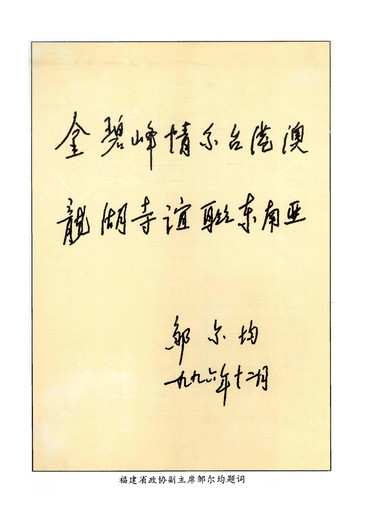 金碧峰情系台港澳
龍湖寺谊联东南亚
邹尔均
一九九六年十二月
福建省政协副主席邹尔均题词